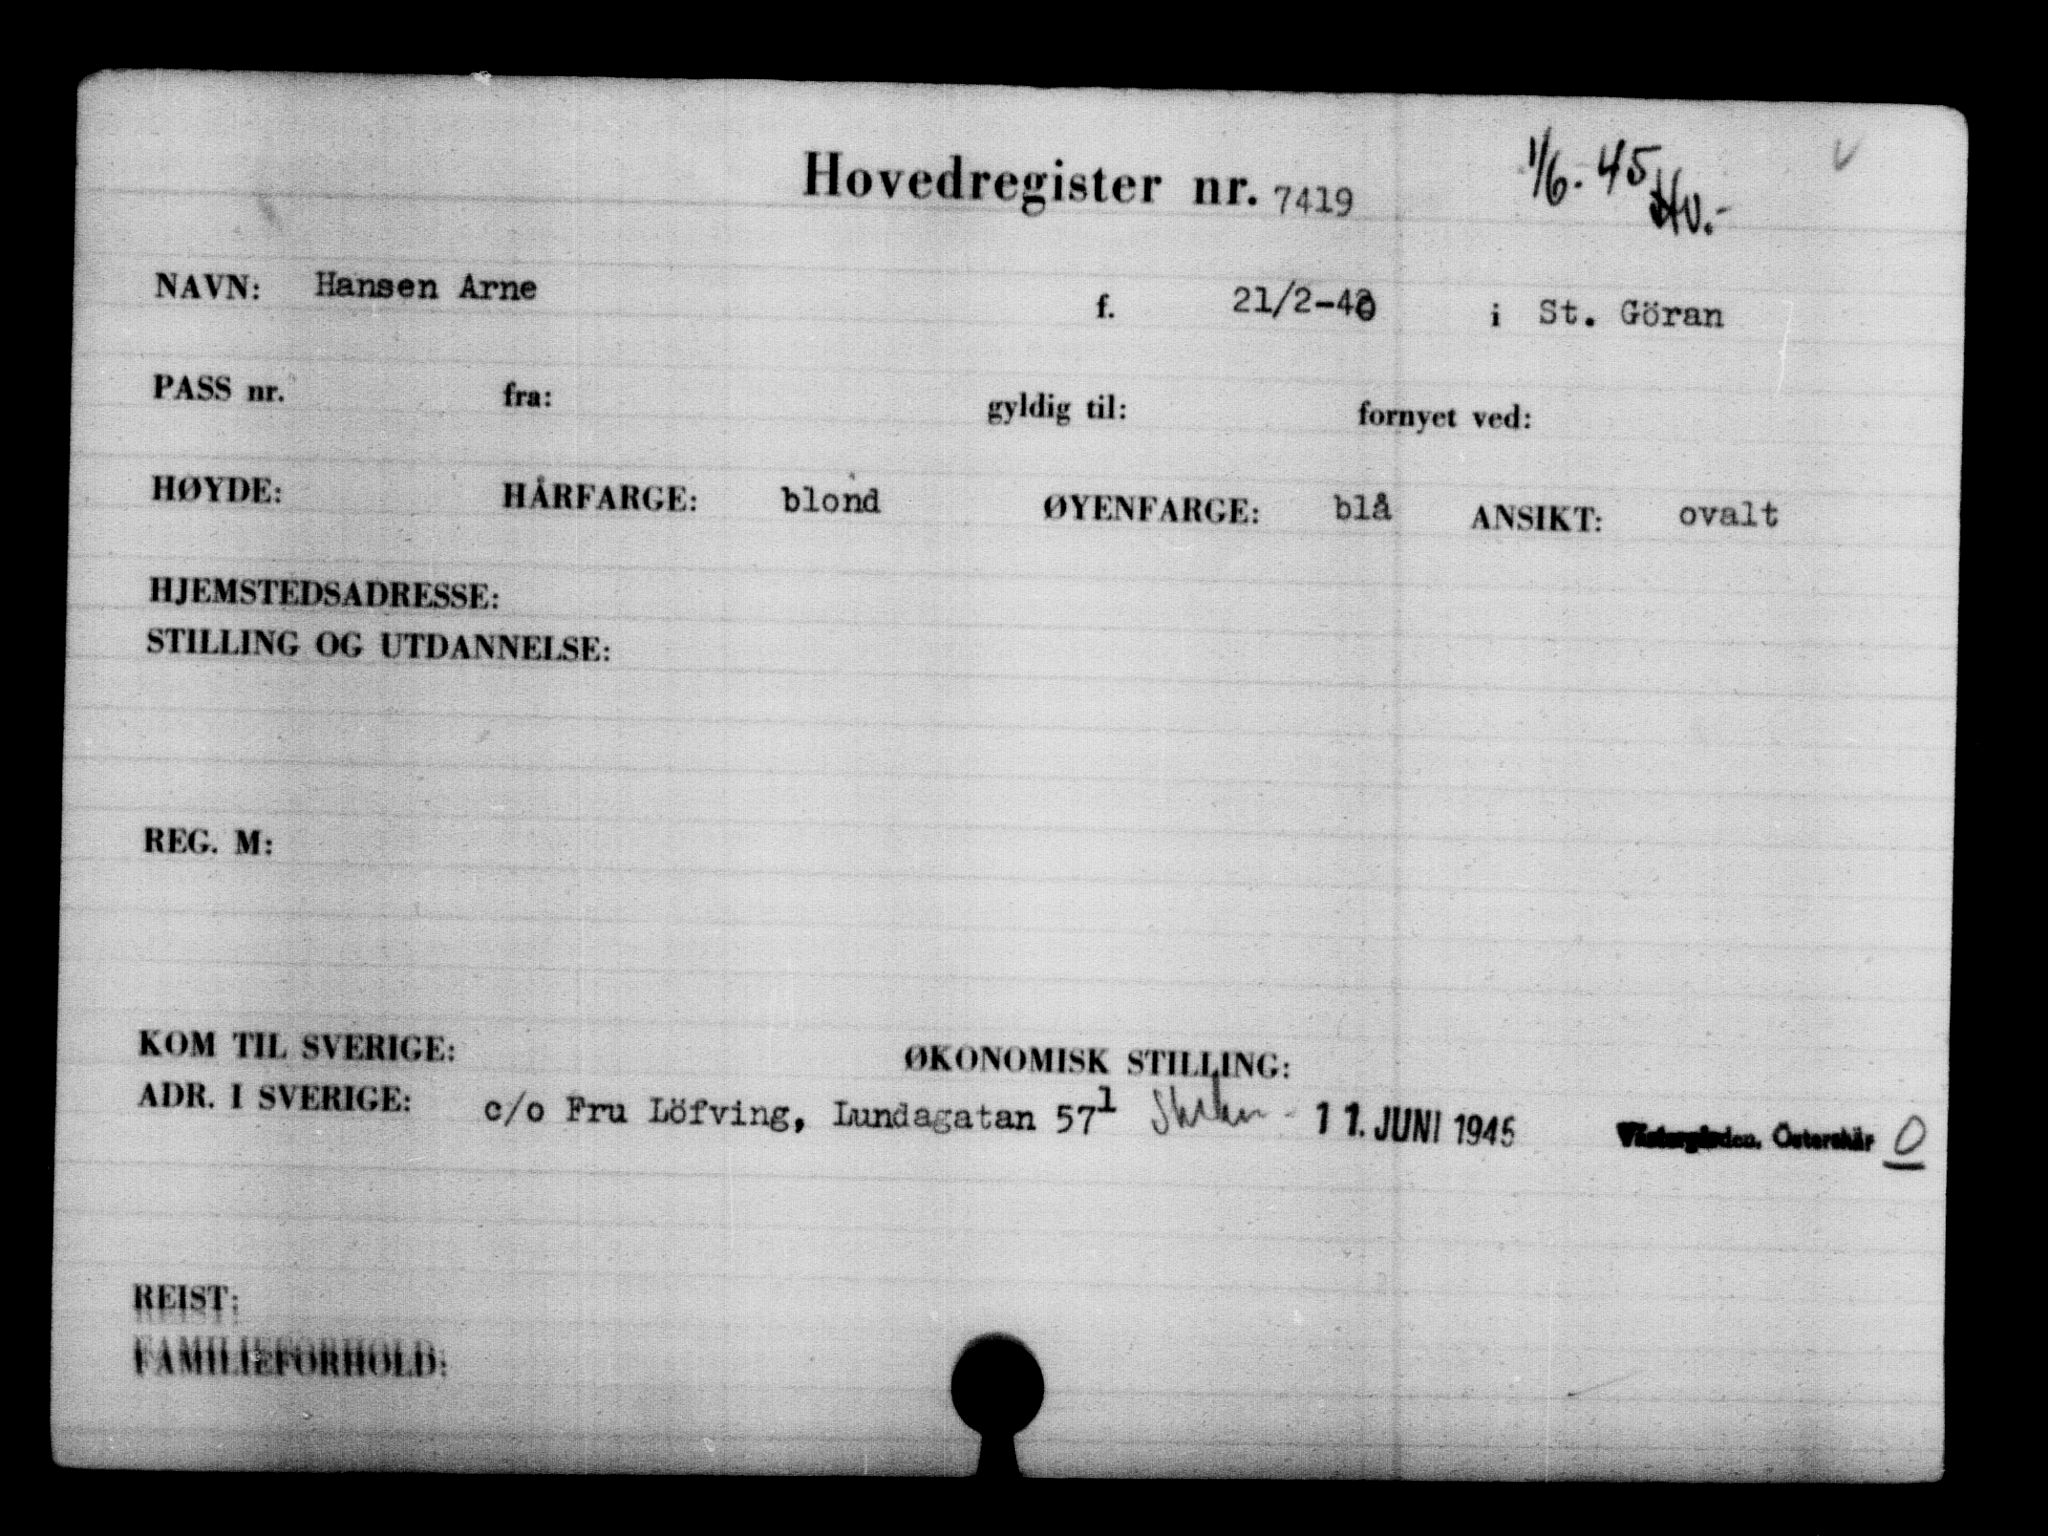 Hovedregister nr. 7419 1/6. 45
NAVN: Hansen Arne f. 21/2-40 i St. Göran
PASS nr. fra: gyldig til: fornyet ved:
HØYDE: HÅRFARGE: blond ØYENFARGE: blå ANSIKT: ovalt
HJEMSTEDSADRESSE:
STILLING OG UTDANNELSE:
REG. M:
KOM TIL SVERIGE: ØKONOMISK STILLING:
ADR. I SVERIGE: c/o Fru Löfving, Lundagatan 57¹ 11. JUNI 1945 Västergården. Österskär O
REIST:
FAMILIEFORHOLD: